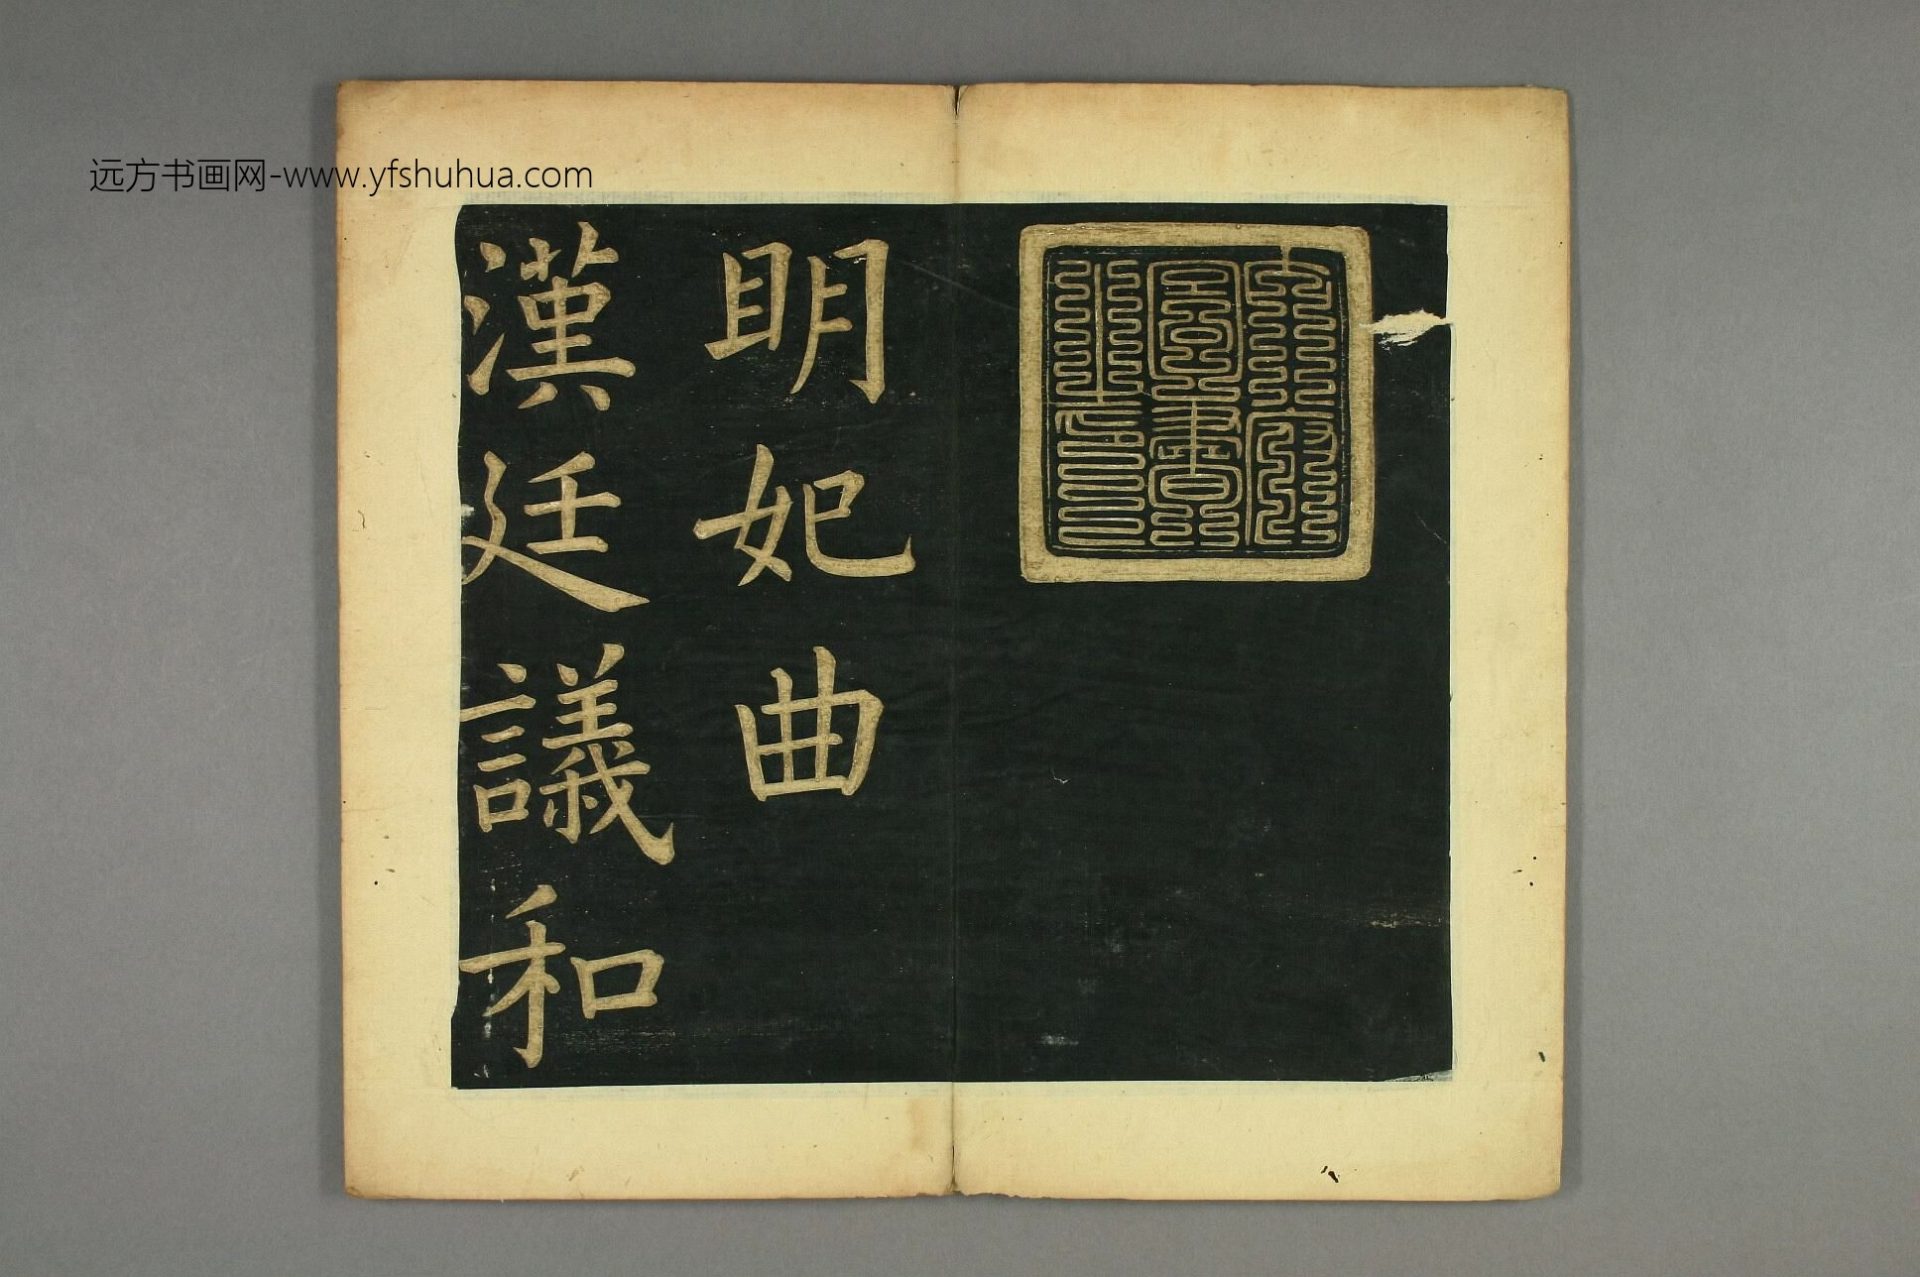 远方书画网-www.yfshuhua.com
眀妃曲
漢廷議和